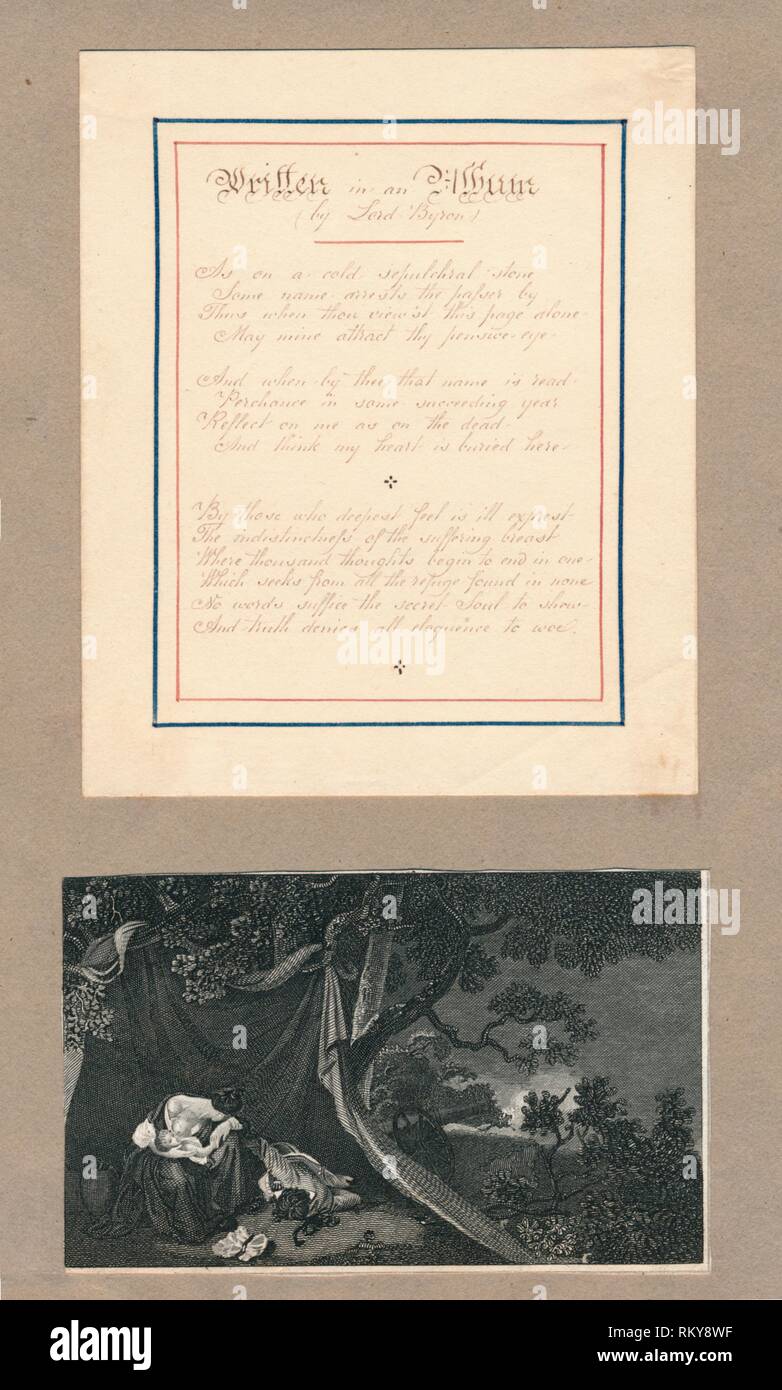 Written in an Album
(by Lord Byron)
As on a cold sepulchral stone
Some name arrests the paſser by
Thus when thou view'st this page alone
May mine attract thy pensive eye
And when by thee that name is read
Perchance in some succeeding year
Reflect on me as on the dead
And think my heart is buried here
By those who deepest feel is ill exprest
The indistinctneſs of the suffering breast
Where thousand thoughts begin to end in one
Which seeks from all the refuge found in none
No words suffice the secret Soul to show
And truth denies all eloquence to woe.
alamy
alamy
Image ID: RKY8WF
www.alamy.com